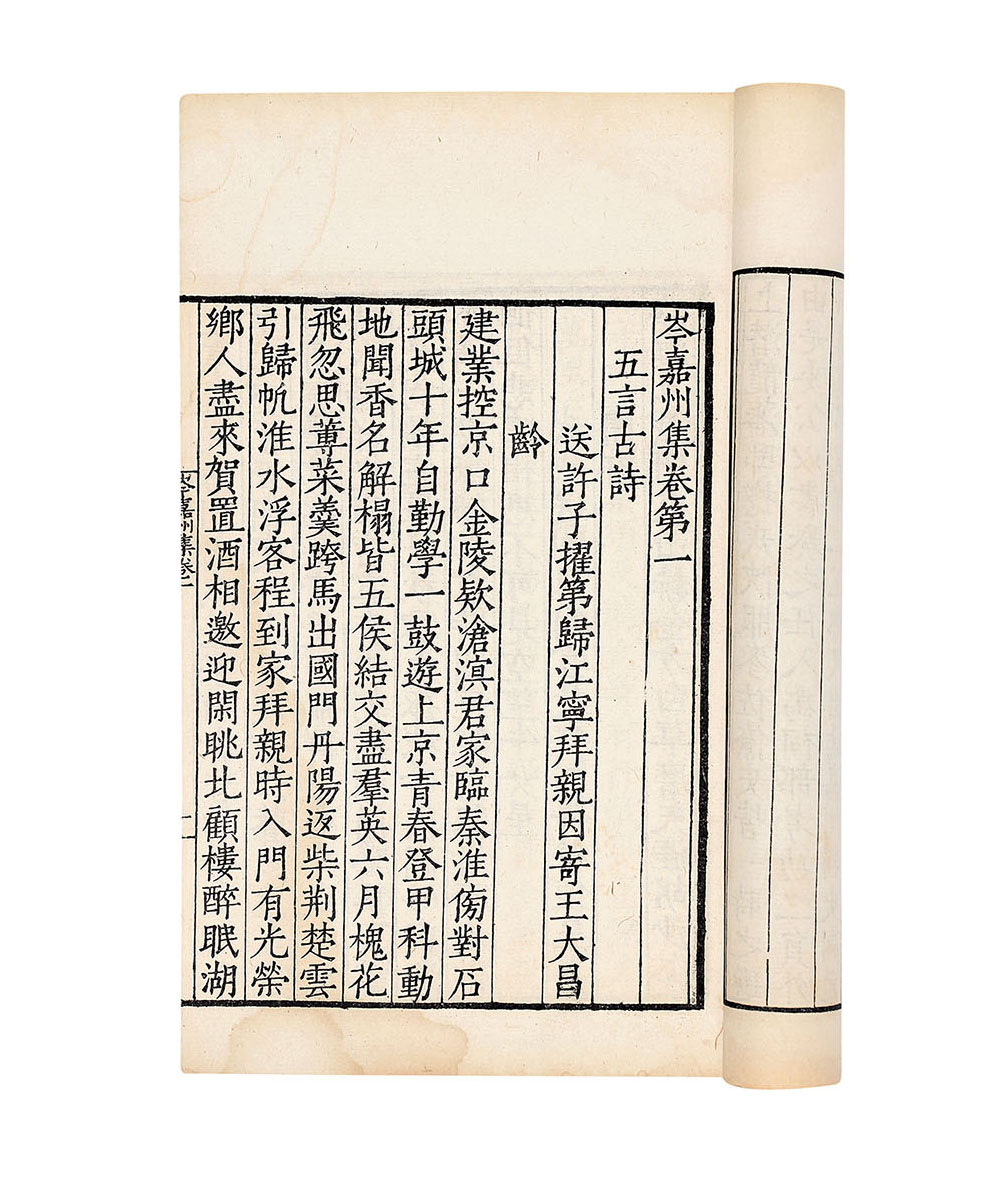 岑嘉州集卷第一
五言古詩
送許子擢第歸江寧拜親因寄王大昌
齡
建業控京口金陵欵滄溟君家臨秦淮傍對石
頭城十年自勤學一鼓遊上京青春登甲科動
地聞香名解榻皆五侯結交盡羣英六月槐花
飛忽思蓴菜羹跨馬出國門丹陽返柴荆楚雲
引歸帆淮水浮客程到家拜親時入門有光榮
鄉人盡來賀置酒相邀迎閑眺北顧樓醉眠湖